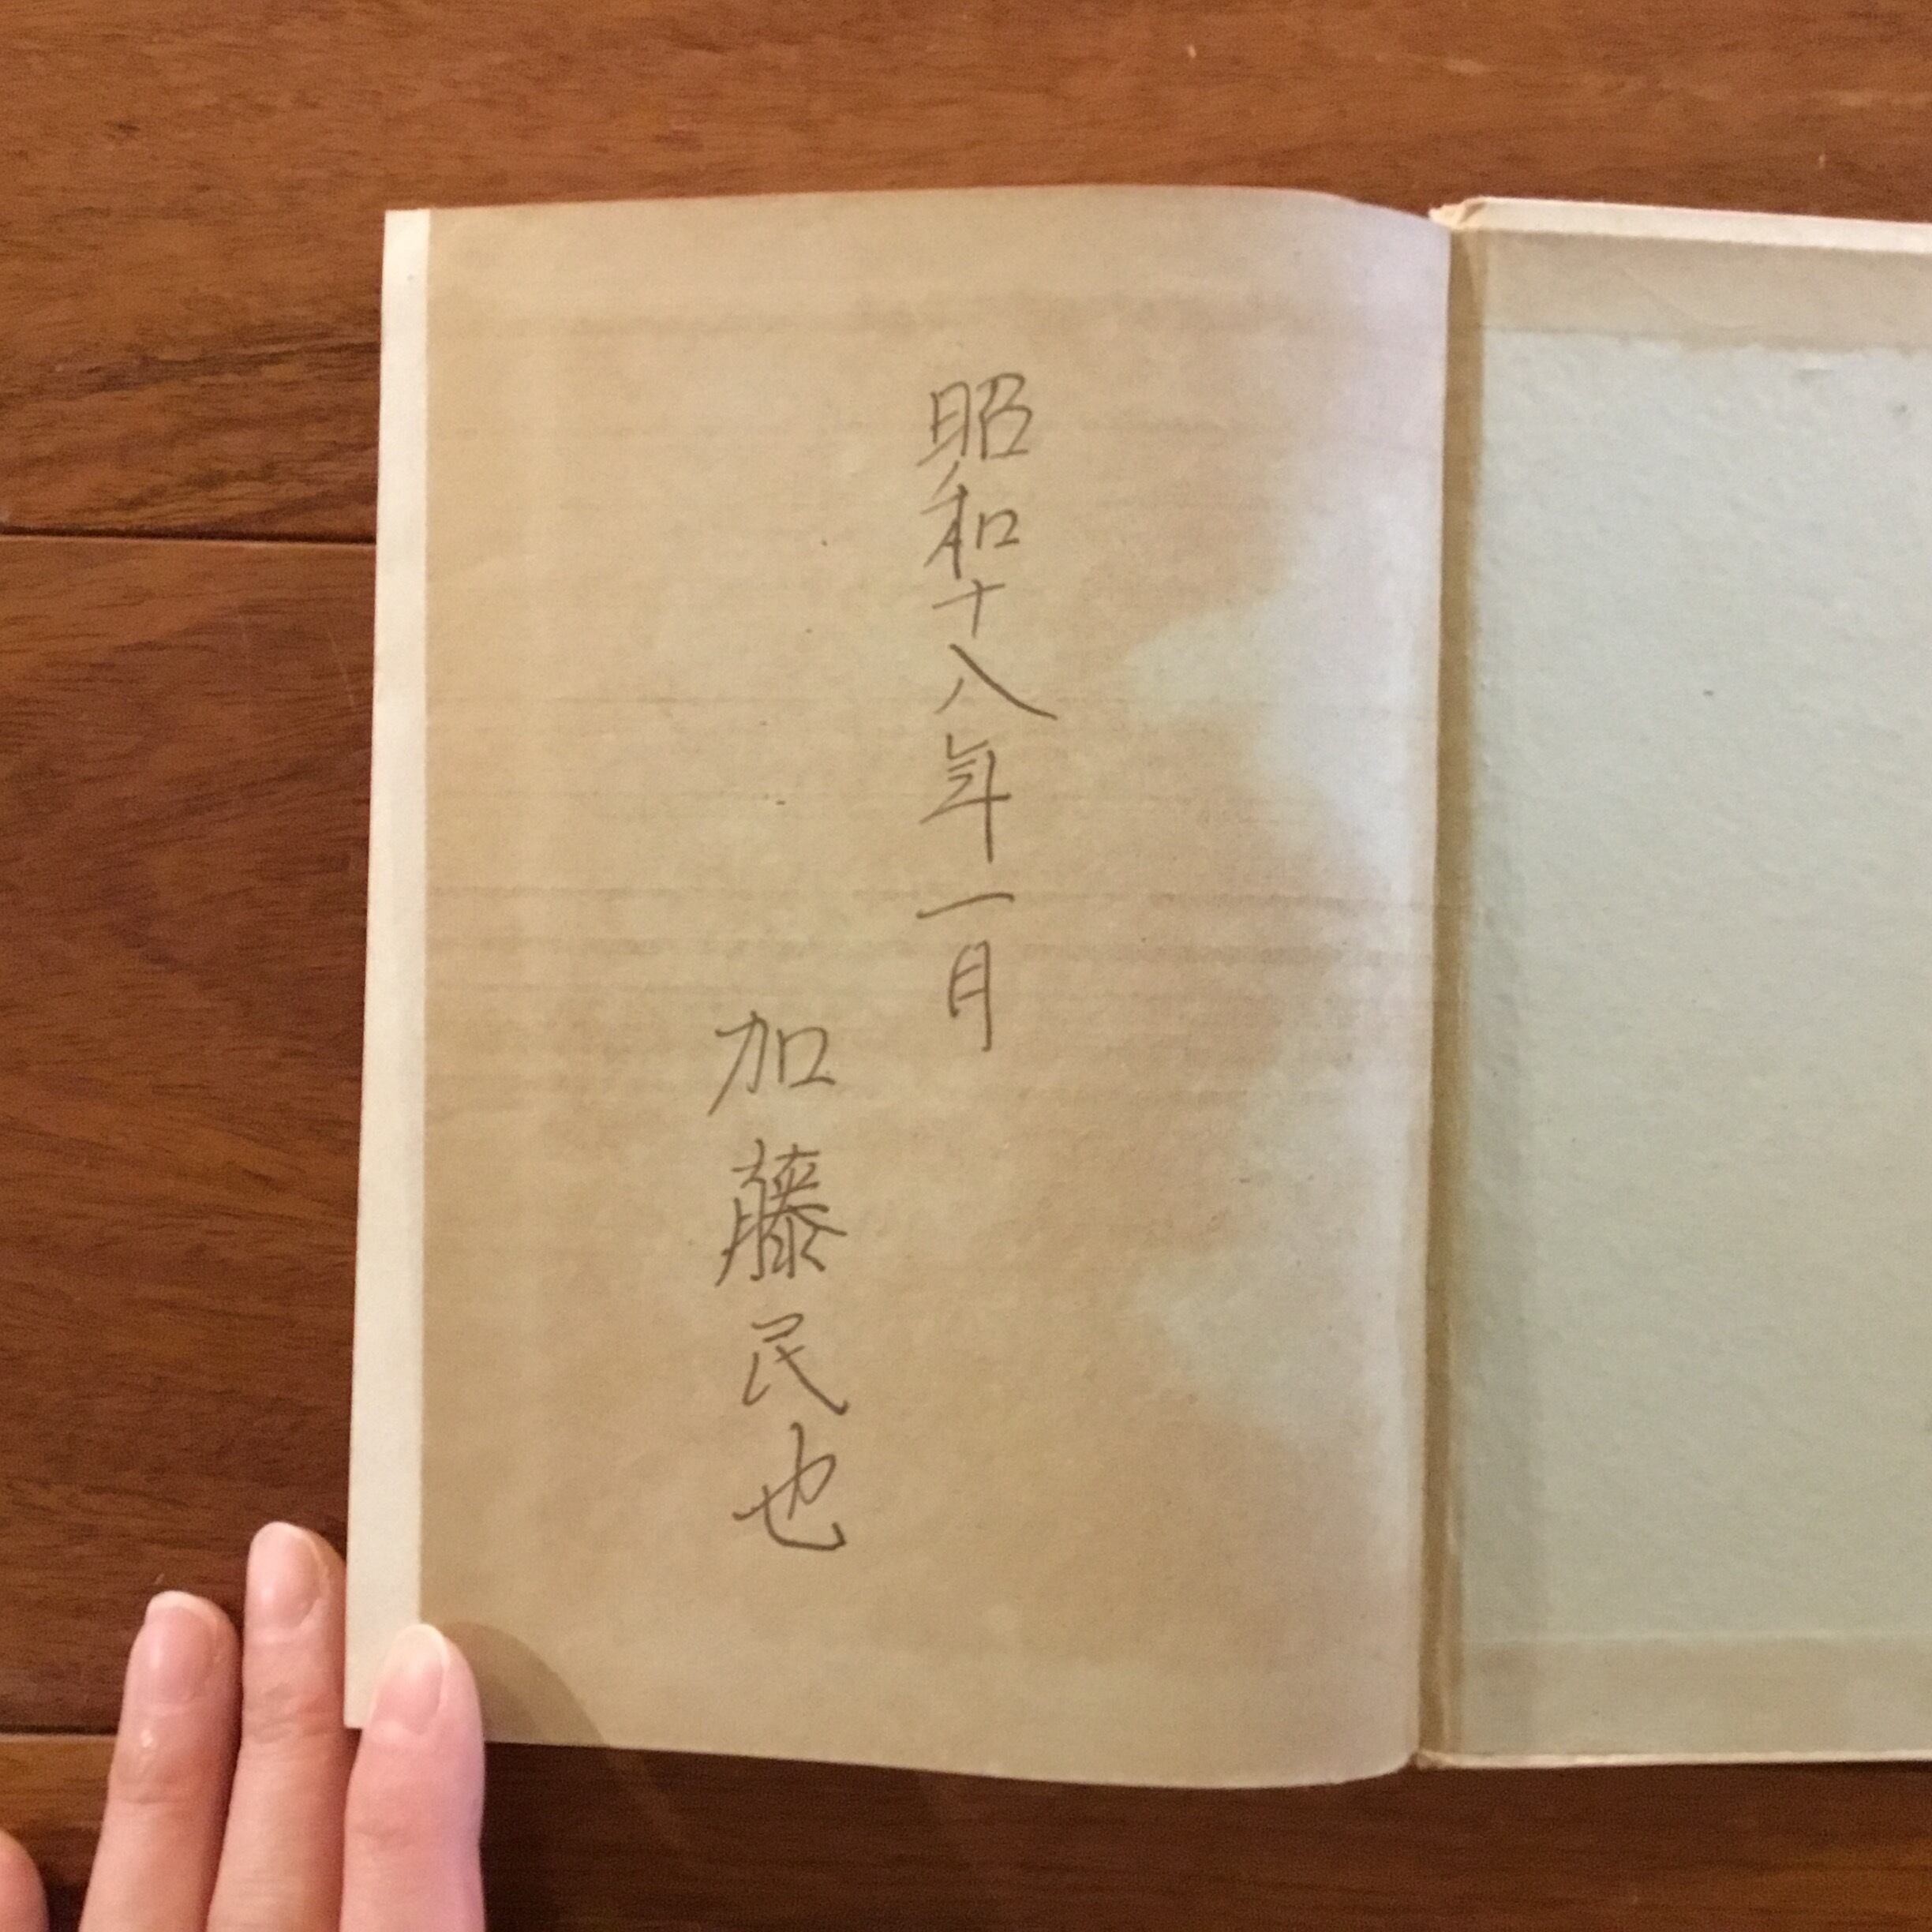 昭和十八年一月
加藤民也